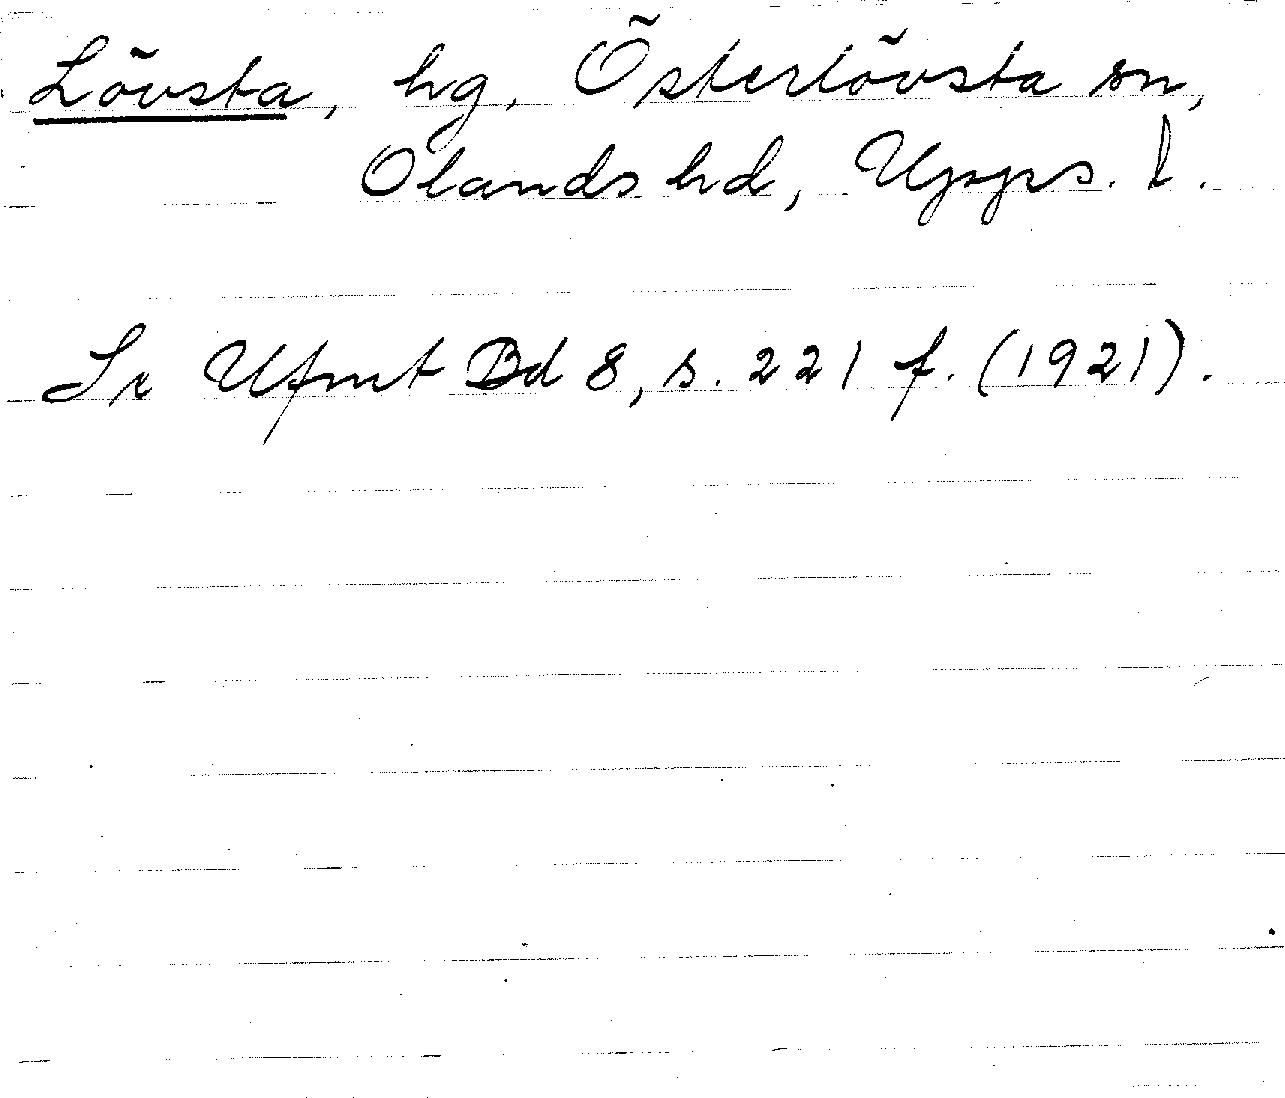 Lövsta, hg, Österlövsta sn,
Olands hd, Upps. l.
Se Ufmt Bd 8, s. 221 f. (1921).